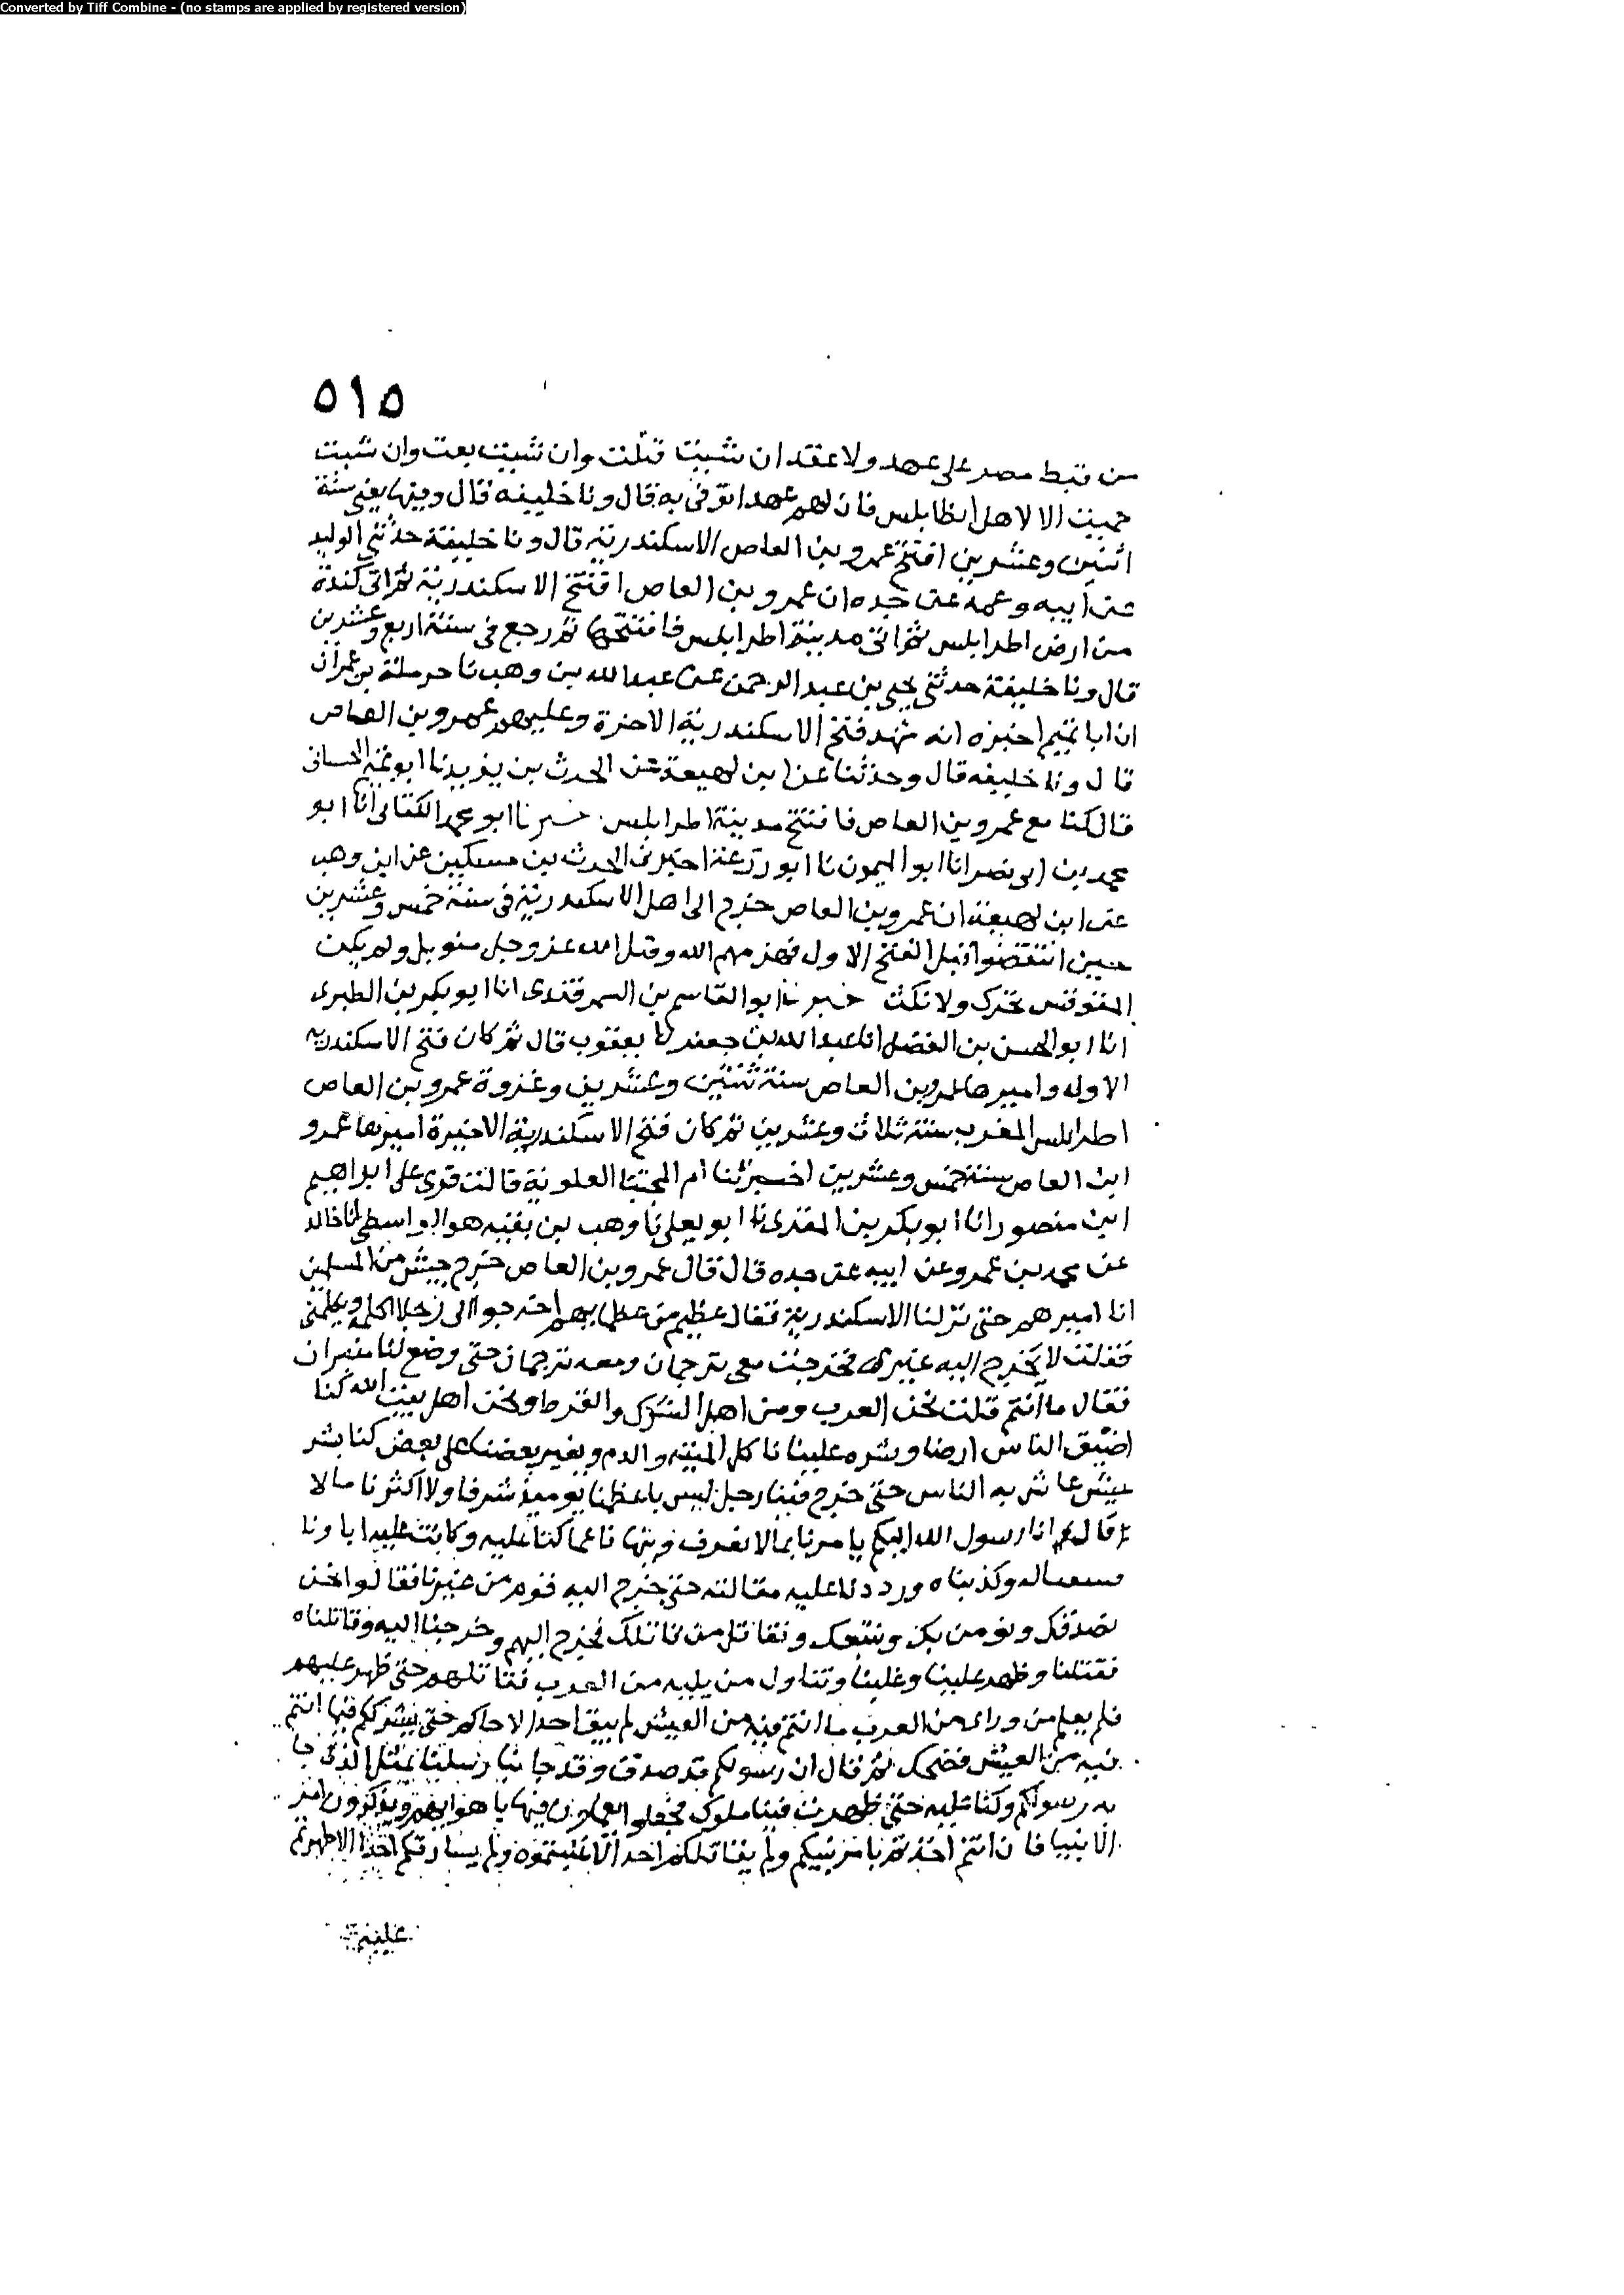 Converted by Tiff Combine - (no stamps are applied by registered version)
٥١٥
من قبط مصر على عهد ولا عقد ان شيت قتلت وان شيت بعت وان شيت
خميت الا لاهل انطابلس فان لهم عهدا نوفي به قال ونا خليفه قال وفيها يعني سنة
اثنين وعشرين افتتح عمرو بن العاص الاسكندرية قال ونا خليفة حدثني الوليد
عن ابيه وعمه عن جده ان عمرو بن العاص افتتح الاسكندرية ثم اتى كندة
من ارض اطرابلس ثم اتى مدينة اطرابلس فافتتحها ثم رجع في سنة اربع وعشرين
قال ونا خليفة حدثني يحيى بن عبد الرحمن عن عبد الله بن وهب نا حرملة بن عمران
ان ابا تميم اخبره انه شهد فتح الاسكندرية الاخرة وعليهم عمرو بن العاص
قال ونا خليفه قال وحدثنا عن ابن لهيعة عن الحرث بن يزيد نا ابو تميم الجيشاني
قال كنا مع عمرو بن العاص فافتتح مدينة اطرابلس خبرنا ابو محمد الكتاني انا ابو
محمد بن ابي نصر انا ابو الميمون نا ابو زرعة اخبرني الحرث بن مسكين عن ابن وهب
عن ابن لهيعة ان عمرو بن العاص خرج الى اهل الاسكندرية في سنة خمس وعشرين
حين انتقضوا قبل الفتح الاول فهزمهم الله وقتل الله عز وجل منويل ولم يكن
المقوقس تحرك ولا نكث خبرنا ابو القاسم بن السمرقندى انا ابو بكر بن الطبرى
انا ابو الحسن بن الفضل انا عبد الله بن جعفر نا يعقوب قال ثم كان فتح الاسكندريه
الاوله واميرها عمرو بن العاص سنة ثنتين وعشرين وغزوة عمرو بن العاص
اطرابلس المغرب سنة ثلاث وعشرين ثم كان فتح الاسكندرية الاخيرة اميرها عمرو
ابن العاص سنة خمس وعشرين اخبرتنا ام المجتبا العلوية قالت قرى على ابراهيم
ابن منصور انا ابو بكر بن المقرى نا ابو يعلى نا وهب بن بقيه هو الواسطي انا خالد
عن محمد بن عمرو عن ابيه عن جده قال قال عمرو بن العاص خرج جيش من المسلمين
انا اميرهم حتى نزلنا الاسكندرية فقال عظيم من عظمايهم اخرجوا الى رجلا اكلمه ويكلمني
فقلت لا يخرج اليه غيرى فخرجت معي ترجمان ومعه ترجمان حتى وضع لنا منبران
فقال ما انتم قلت نحن العرب ومن اهل الشوك والقرظ ونحن اهل بيت الله كنا
اضيق الناس ارضا وشره علينا ناكل الميته والدم ويغير بعضنا على بعض كنا بشر
عيش عاش به الناس حتى خرج فينا رجل ليس باعظمنا يوميذ شرفا ولا اكثرنا مالا
قال انا رسول الله اليكم يامرنا بما لا نعرف وينهانا عما كنا عليه وكانت عليه اباونا
فسعنا له وكذبناه ورددنا عليه مقالته حتى خرج اليه قوم من غيرنا فقالوا نحن
نصدقك ونومن بك ونتبعك ونقاتل من قاتلك فخرج اليهم وخرجنا اليه وقاتلناه
فقتلنا وظهر علينا وغلبنا وتناول من يليه من العرب فقاتلهم حتى ظهر عليهم
فلم يعلم من وراى من العرب ما انتم فيه من العيش لم يبق احد الا جاكم حتى يشرككم فيما انتم
فيه من العيش فضحك ثم قال ان رسولكم قد صدق وقد جاتنا رسلنا بمثل الذى جا
به رسولكم وكنا عليه حتى ظهرت فينا ملوك فجعلوا يعملون فينا باهوايهم ويتركون امر
الانبيا فان انتم اخذتم بامر نبيكم ولم يقاتلكم احد الا غلبتموه ولم يشارركم احد الا ظهرتم
عليه